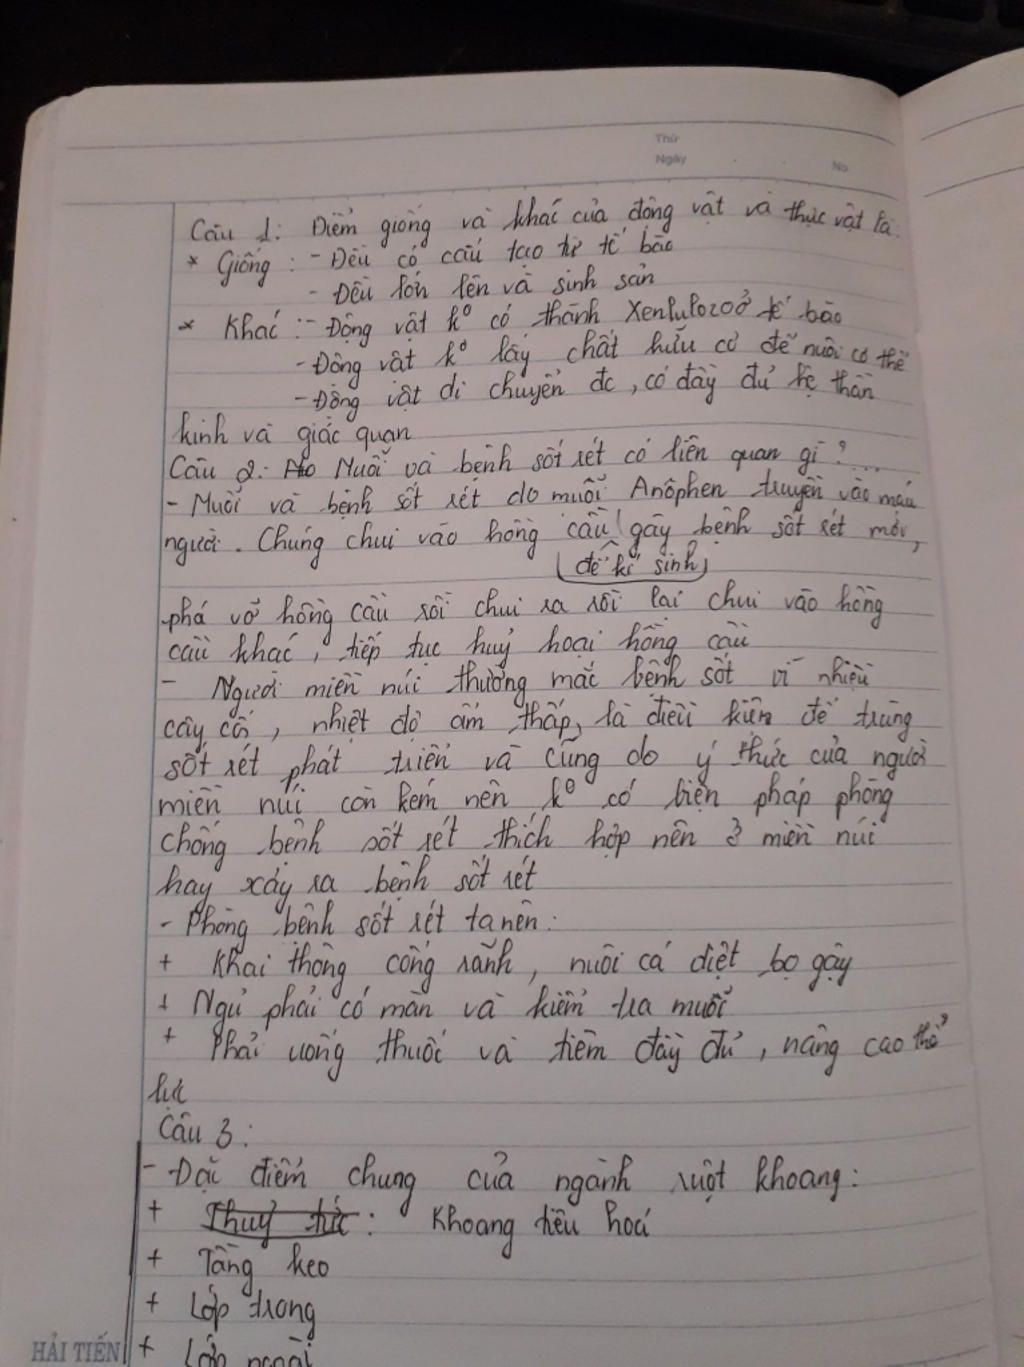 Thứ
Ngày
No
Câu 1: Điểm giống và khác của động vật và thực vật là:
* Giống : - Đều có cấu tạo từ tế bào
- Đều lớn lên và sinh sản
* Khác : - Động vật k° có thành Xenlulozoở tế bào
- Động vật k° lấy chất hữu cơ để nuôi cơ thể
- Động vật di chuyển đc, có đầy đủ hệ thần
kinh và giác quan
Câu 2: Muỗi và bệnh sốt rét có liên quan gì ? ...
- Muỗi và bệnh sốt rét do muỗi Anôphen truyền vào máu
người. Chúng chui vào hồng cầu gây bệnh sốt rét mới,
để kí sinh
phá vỡ hồng cầu rồi chui ra rồi lại chui vào hồng
cầu khác, tiếp tục huỷ hoại hồng cầu
- Người miền núi thường mắc bệnh sốt vì nhiều
cây cối, nhiệt độ ẩm thấp, là điều kiện để trùng
sốt rét phát triển và cũng do ý thức của người
miền núi còn kém nên k° có biện pháp phòng
chống bệnh sốt rét thích hợp nên ở miền núi
hay xảy ra bệnh sốt rét
- Phòng bệnh sốt rét ta nên:
+ Khai thông cống rãnh, nuôi cá diệt bọ gậy
+ Ngủ phải có màn và kiểm tra muỗi
+ Phải uống thuốc và tiêm đầy đủ, nâng cao thể
lực
Câu 3:
- Đặc điểm chung của ngành ruột khoang:
+ Thuỷ tức: Khoang tiêu hoá
+ Tầng keo
+ Lớp trong
+ Lớp ngoài
HẢI TIẾN